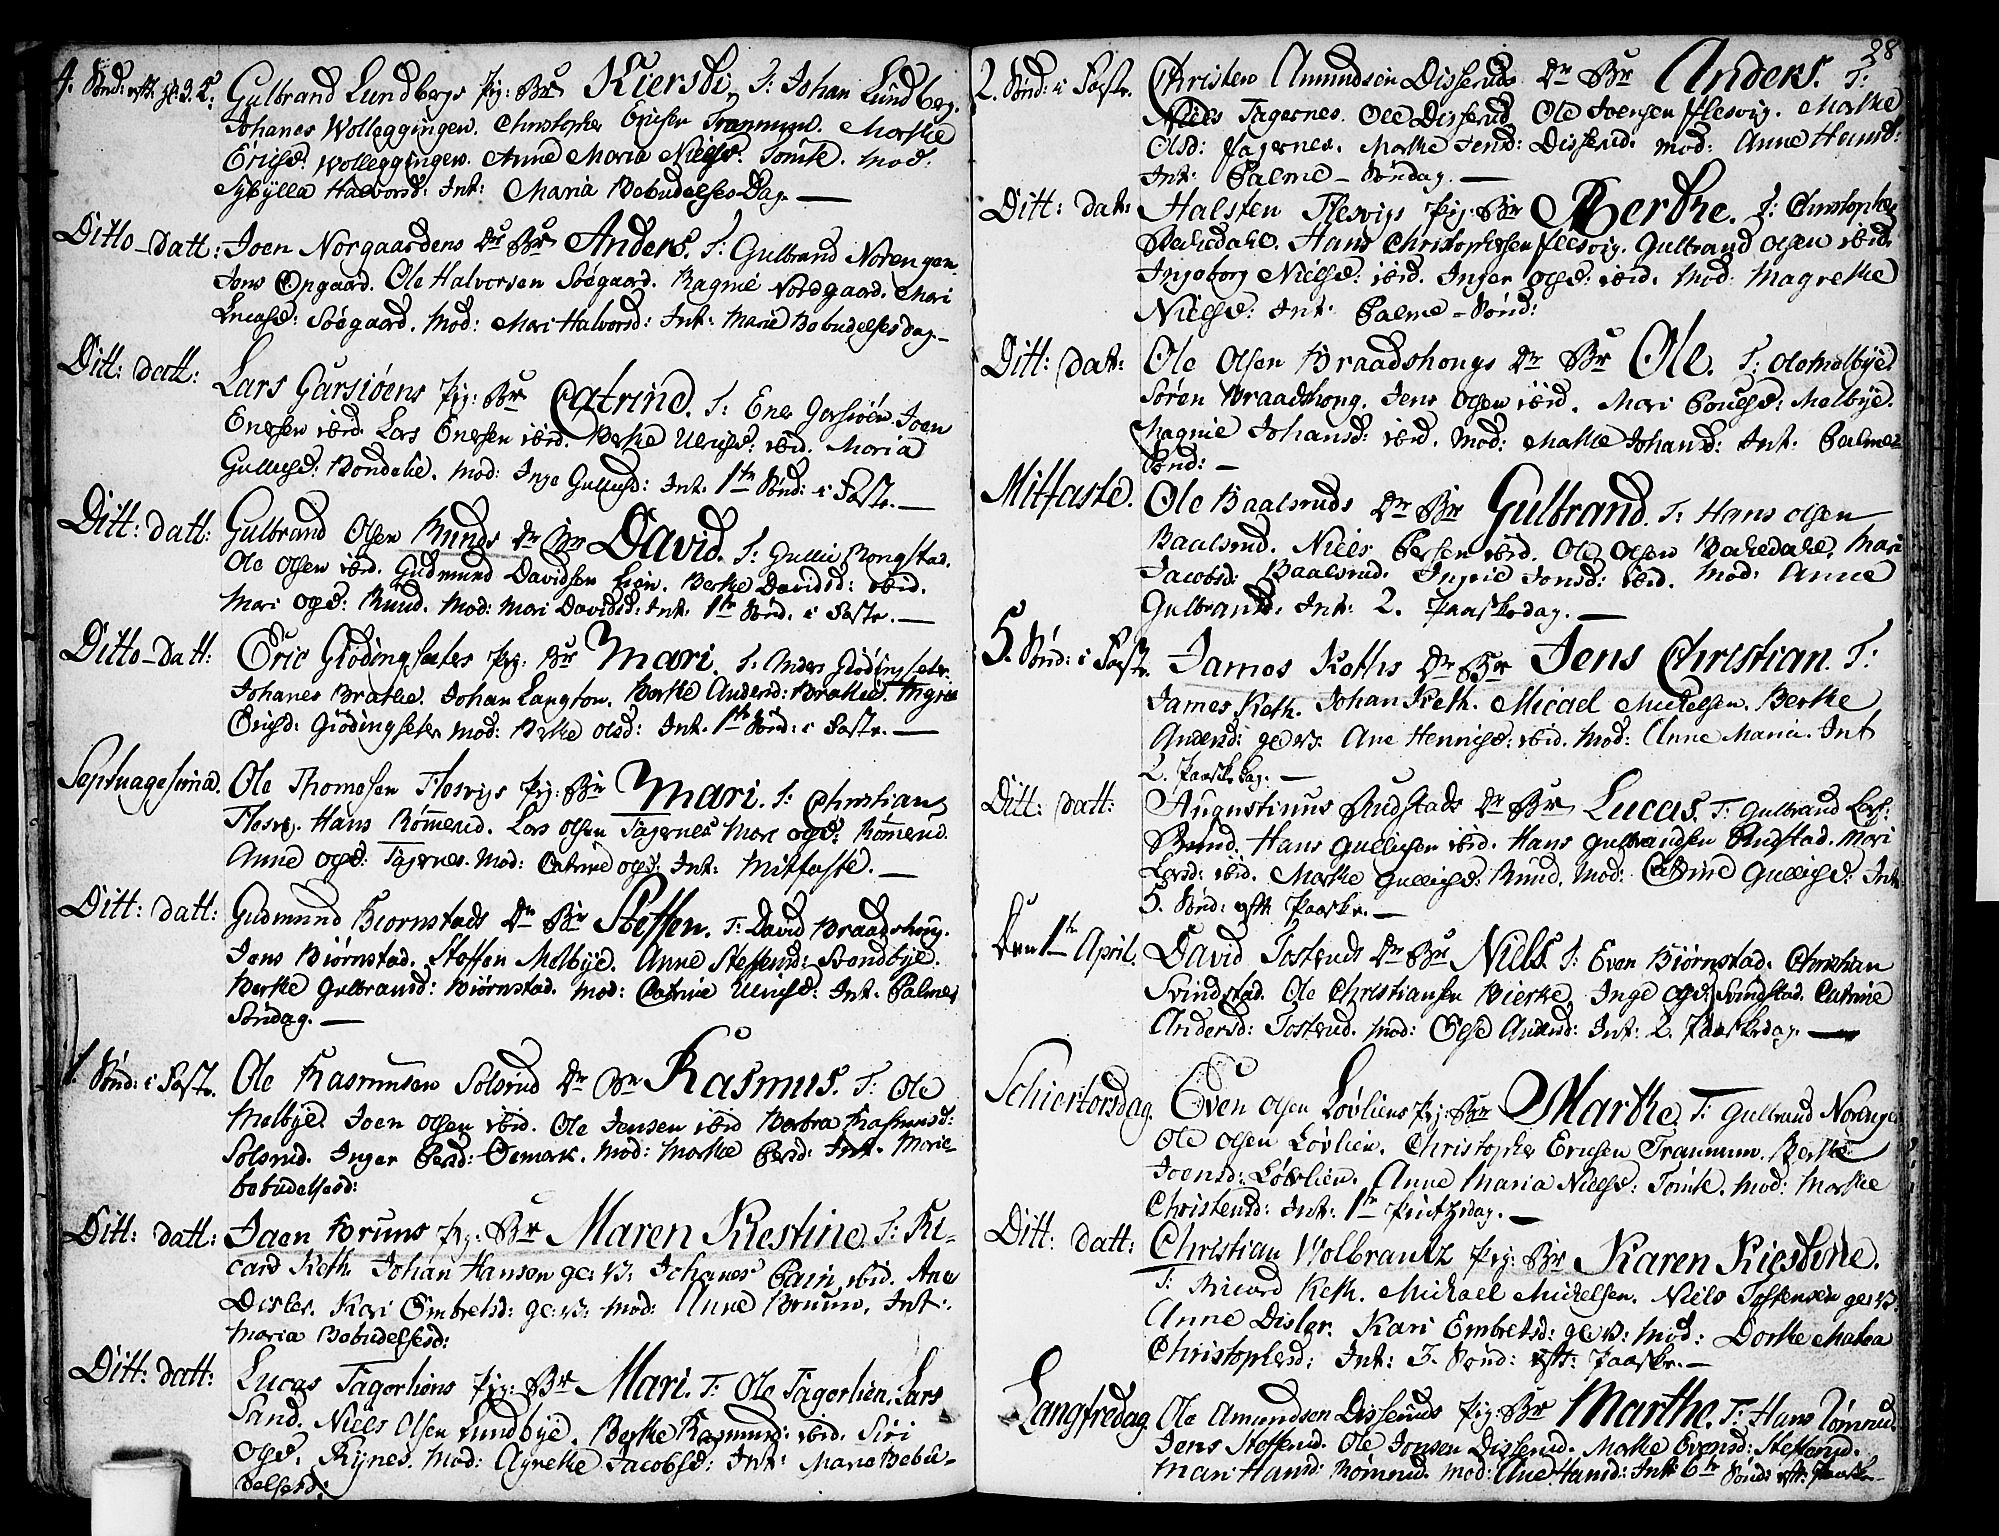 4. Sønd: eft: H: 3. K: Gulbrand Lundbergs Pig: Br Kiersti, T: Johan Lundberg.
Johanes Wolleggingen. Christopher Ericsen Tranmun. Marthe
Ericsd: Wolleggingen. Anne Maria Nielsd: Tomte. Mod:
Sybylla Halvorsd: Int: Maria Bebudelses Dag. —
Ditto-datt: Joen Norgaardens Dr Br Anders. T: Gulbrand Norengen.
Jens Opgaard. Ole Halvorsen Søegaard. Ragnie Nordgaard. Mari
Lucasd: Søegaard. Mod: Mari Halvorsd: Int: Marie Bebudelses dag. —
Ditt: datt: Lars Garsiøens Pig: Br Catrine. T: Ener Garsiøen. Joen
Enersen ibid. Lars Enersen ibid. Berthe Ulrichsd: ibid. Maria
Gullichsd: Bondelie. Mod: Inge Gullichsd: Int. 1te Sønd: i Faste. —
Ditt: datt: Gulbrand Olsen Runds Dr Br David. T: Gullic Rongstad.
Ole Olsen ibid. Gudmund Davidsen Lien. Berthe Davidsd: ibid.
Mari Olsd: Rund. Mod: Mari Davidsd: Int: 1te Sønd. i Faste. —
Ditto-datt: Eric Giødingseters Pig: Br Mari. T: Anders Giødingseter.
Johanes Brathe. Johan Langton. Berthe Andersd: Brathe. Ingrie
Ericsd: Giødingseter Mod: Berthe Olsd: Int. 1te Sønd: i Faste. —
Septuagesima. Ole Thomesen Flesvigs Pig: Br Mari. T: Christian
Flesvig. Hans Rømerud. Lars Olsen Fagernes. Mari Olsd: Rømerud.
Anne Olsd: Fagernes. Mod: Catrine Olsd: Int: Mitfaste. —
Ditt: datt: Gudmund Biørnstads Dr Br Steffen. T: David Braadshoug.
Jens Biørnstad. Steffen Melbye. Anne Steffensd: Sandbye.
Berthe Gulbransd: Biørnstad. Mod: Catrine Ulrichsd: Int. Palme
Søndag. —
1. Sønd: i Faste. Ole Rasmusen Solsrud Dr Br Rasmus. T: Ole
Melbye. Joen Olsen ibid. Ole Jensen ibid Barbra Rasmusd:
Solsrud. Inger Persd: Semark. Mod: Marthe Persd: Int. Marie-
bebudelsesd:
Ditt: datt: Jaen Bruns Pig: Br Maren Kiestine. T: Ri-
card Keth. Johan Hansen ge: V: Johanes Pain, ibid. Ane
Disler. Kari Embretsd: ge: V: Mod: Anne Bruun. Int:
Maria Bebudelsesd:
Ditt: datt: Lucas Fagerliens Pig: Br Mari. T: Ole Fagerlien. Lars
Sand. Niels Olsen Lundbye. Berthe Rasmusd: ibid. Siri
Olsd. Rynes. Mod: Agnethe Jacobsd: Int: Maria Bebu-
delsesd:
88
2. Sønd: i Faste. Christen Amundsen Disseruds Dr Br Anders. T:
Niels Fagernes. Ole Disserud. Ole Joensen Flesvig. Marthe
Olsd: Fagernes. Marthe Jensd: Disserud. Mod: Anne Hansd:
Int: Palme-Søndag. —
Ditt: dat: Halsten Flesvigs Pig: Br Berthe. T: Christopher
Bekedahl. Hans Christophersen Flesvig. Gulbrand Olsen ibid.
Ingeborg Nielsd: ibid. Inger Olsd: ibid. Mod: Magrethe
Nielsd: Int: Palme-Sønd:
Ditt: dat: Ole Olsen Braadshougs Dr Br Ole. T: Ole Melbye
Søren Braadshoug. Jens Olsen ibid. Mari Pouelsd: Melbye.
Ragnie Johansd: ibid. Mod: Malthe Johansd: Int: Palme-
Sønd: —
Mitfaste. Ole Baalsruds Dr Br Gulbrand. T: Hans Olsen
Baalsrud. Niels Persen ibid. Ole Olsen Bakedahl. Mari
Jacobsd: Baalsrud. Ingrie Jonsd: ibid. Mod: Anne
Gulbransd: Int: 2. Paaskedag. —
5. Sønd: i Faste. James Keths Dr Br Jens Christian. T:
James Keth. Johan Keth. Micael Mickelsen. Berthe
Andersd: ge: V: Ane Henrichsd: ibid. Mod: Anne Maria. Int
2. Paaskedag. —
Ditt: datt: Augustinus Rudstads Dr Br Lucas. T: Gulbrand Lars:
Brund. Hans Gullichsen ibid. Hans Gulbrandsen Rudstad. Mari
Larsd: ibid. Marthe Gullichsd: Rund. Mod: Catrine Gullichsd: Int:
5. Sønd: eft: Paaske. —
Den 1te April. David Tosteruds Dr Br Niels. T: Even Biørnstad. Christian
Svindstad. Ole Christiansen Bierke. Inge Olsd: Svindstad. Catrine
Andersd: Tosterud. Mod: Else Andersd: Int: 2. Paaskedag. —
Schiertorsdag. Even Olsen Løvliens Pig: Br Marthe. T: Gulbrand Norengen
Ole Olsen Løvlien. Christopher Ericsen Tranmun. Berthe
Joensd: Løvlien. Anne Maria Nielsd: Tomte. Mod: Marthe
Christensd: Int: 1te Pintzedag. —
Ditt: datt: Christian Wolbrantz Pig: Br Karen Kiestine.
T: Ricard Keth. Mickael Mickelsen. Niels Tostensen ge: V:
Anne Disler. Kari Embretsd: ge: V: Mod: Dorthe Malea
Christophersd: Int: 3. Sønd: eft: Paaske. —
Langfredag. Ole Amundsen Disseruds Pig: Br Marthe. T: Hans Rømerud.
Jens Stefferud. Ole Jonsen Disserud. Marthe Evensd: Stefferud.
Mari Hansd: Rømerud. Mod: Ane Hansd: Int: 6te Sønd: eft: Paaske